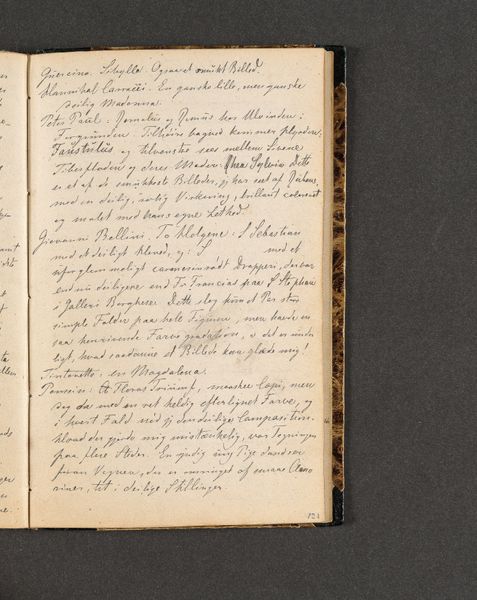 Guercino. Sibylla. Ogsaa et smukt Billed.
Hannibal Carracci. En ganske lille, men ganske
deilig Madonna.
Peter Paul: Romulus og Remus hos Ulvinden;
Faustulus og tilvenstre sees mellem Sivene
Tiberfloden og deres Moder: Rhea Sylvia. Dette
er et af de smukkeste Billeder, jeg har seet af Rubens,
med en deilig, solrig Virkning, brillant coloreret
og malet med hans egne Lethed.
Giovanni Bellini. To Helgene: S Sebastian
med et deiligt Hoved, og: S med et
uforglemmeligt carmosinrødt Draperi, der var
endnu deiligere end Fr. Francias paa S Stephan
i Galleri Borghese. Dette slog kun et Par store
simple Folder paa hele Figuren, men havde en
saa henrivende Farvegradation, o det er under
ligt, hvad saadanne et Billede kan glæde mig!
Tintoretto: en Magdalena.
Poussin: Floras Triumf, maaskee Copi, men
dog da med en ret heldig efterlignet Farve, og
i hvert Fald ved den deilige Composition.
Hvad der gjorde mig mistænkelig, var Tegningen
paa flere Steder. En yndig ung Pige dandser
foran Vognen, der er omringet af
i deilige Stillinger.
121